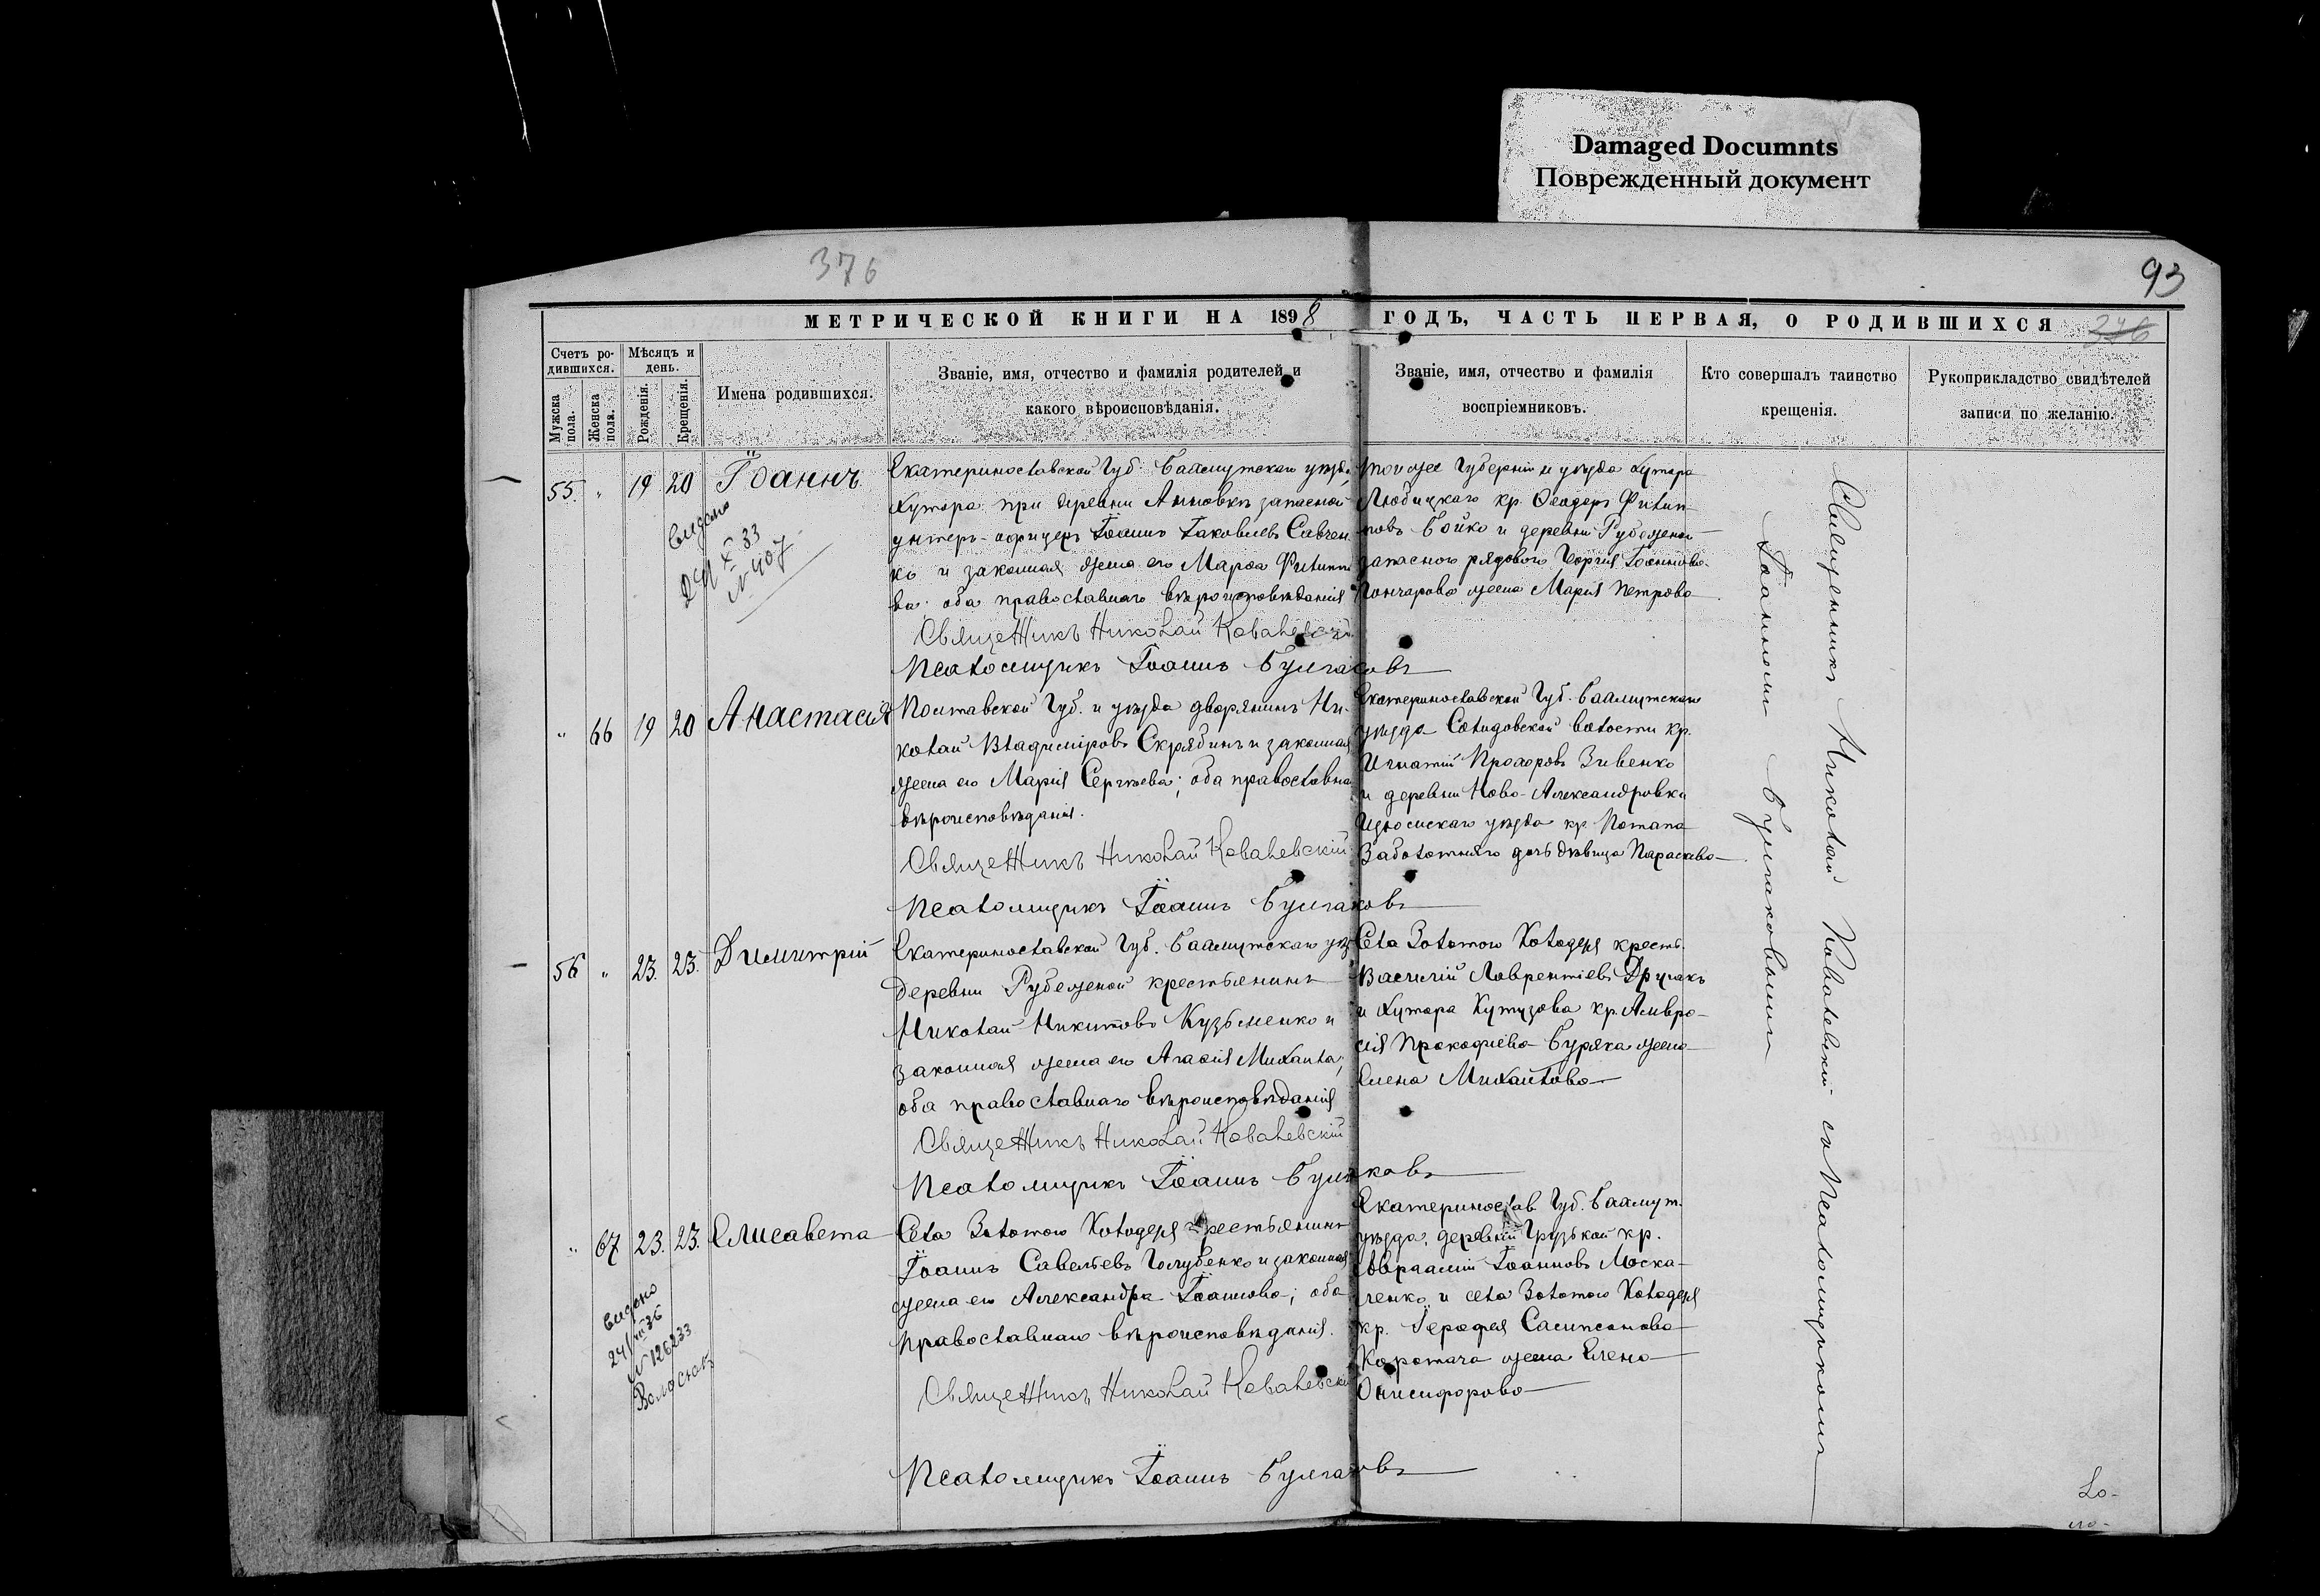 Damaged Documnts
Поврежденный документ
376
93
МЕТРИЧЕСКОЙ КНИГИ НА 1898 ГОДЪ, ЧАСТЬ ПЕРВАЯ, О РОДИВШИХСЯ 376
Счетъ ро-
дившихся.
Мужска
пола.
Женска
пола.
Мѣсяцъ и
день.
Рожденія.
Крещенія.
Имена родившихся.
Званіе, имя, отчество и фамилія родителей и
какого вѣроисповѣданія.
Званіе, имя, отчество и фамилія
воспріемниковъ.
Кто совершалъ таинство
крещенія.
Рукоприкладство свидѣтелей
записи по желанію.
55. " 19 20 Іоаннъ
видано
24/X 33
№ 407
Екатеринославской Губ. Бахмутскаго уѣзда,
Хутора при деревни Анновкѣ запасной
унтеръ-офицеръ Іоаннъ Іаковлевъ Савчен
ко и законная жена его Марѳа Филиппо
ва; оба православнаго вѣроисповѣданія
Священникъ Николай Ковалевскій
Псаломщикъ Іоаннъ Булгаковъ
той же Губерніи и уѣзда Хутора
Любицкаго кр. Ѳеодоръ Филип-
повъ Бойко и деревни Рубежной
запаснаго рядового Георгія Іоаннова
Гончарова жена Марія Петрова
" 66 19 20 Анастасія
Полтавской Губ. и уѣзда дворянинъ Ни-
колай Владиміровъ Скрябинъ и законная
жена его Марія Сергѣева; оба православна
вѣроисповѣданія.
Священникъ Николай Ковалевскій
Псаломщикъ Іоаннъ Булгаковъ
Екатеринославской Губ. Бахмутскаго
уѣзда Солидовской волости кр.
Игнатій Прохоровъ Зивенко
и деревни Ново-Александровки
Изюмскаго уѣзда кр. Потапа
Заболотнаго дочь дѣвица Параскева
56 " 23. 23. Димитрій
Екатеринославской Губ. Бахмутскаго уѣз
деревни Рубежной крестьянинъ
Николай Никитовъ Кузьменко и
законная жена его Агаѳія Михаила,
оба православнаго вѣроисповѣданія
Священникъ Николай Ковалевскій
Псаломщикъ Іоаннъ Булгаковъ
Села Золотого Колодезя крест.
Василій Лаврентіевъ Дручакъ
и Хутора Кутузова кр. Амвро-
сія Прокофіева Буряка жена
Елена Михайлова
" 67 23. 23. Елисавета
видано
24/VII 36
№ 126233
Села Золотого Колодезя крестьянинъ
Іоаннъ Савельевъ Голубенко и законная
жена его Александра Іоаннова; оба
православнаго вѣроисповѣданія.
Священникъ Николай Ковалевскій
Псаломщикъ Іоаннъ Булгаковъ
Екатеринослав. Губ. Бахмут.
уѣзда, деревни Грузькой кр.
Авраамій Іоанновъ Моска-
ленко и села Золотого Колодезя
кр. Іерофея Сампсонова
Коротача жена Елена
Онисифорова
Священникъ Николай Ковалевскій съ Псаломщикомъ
Іоанномъ Булгаковымъ